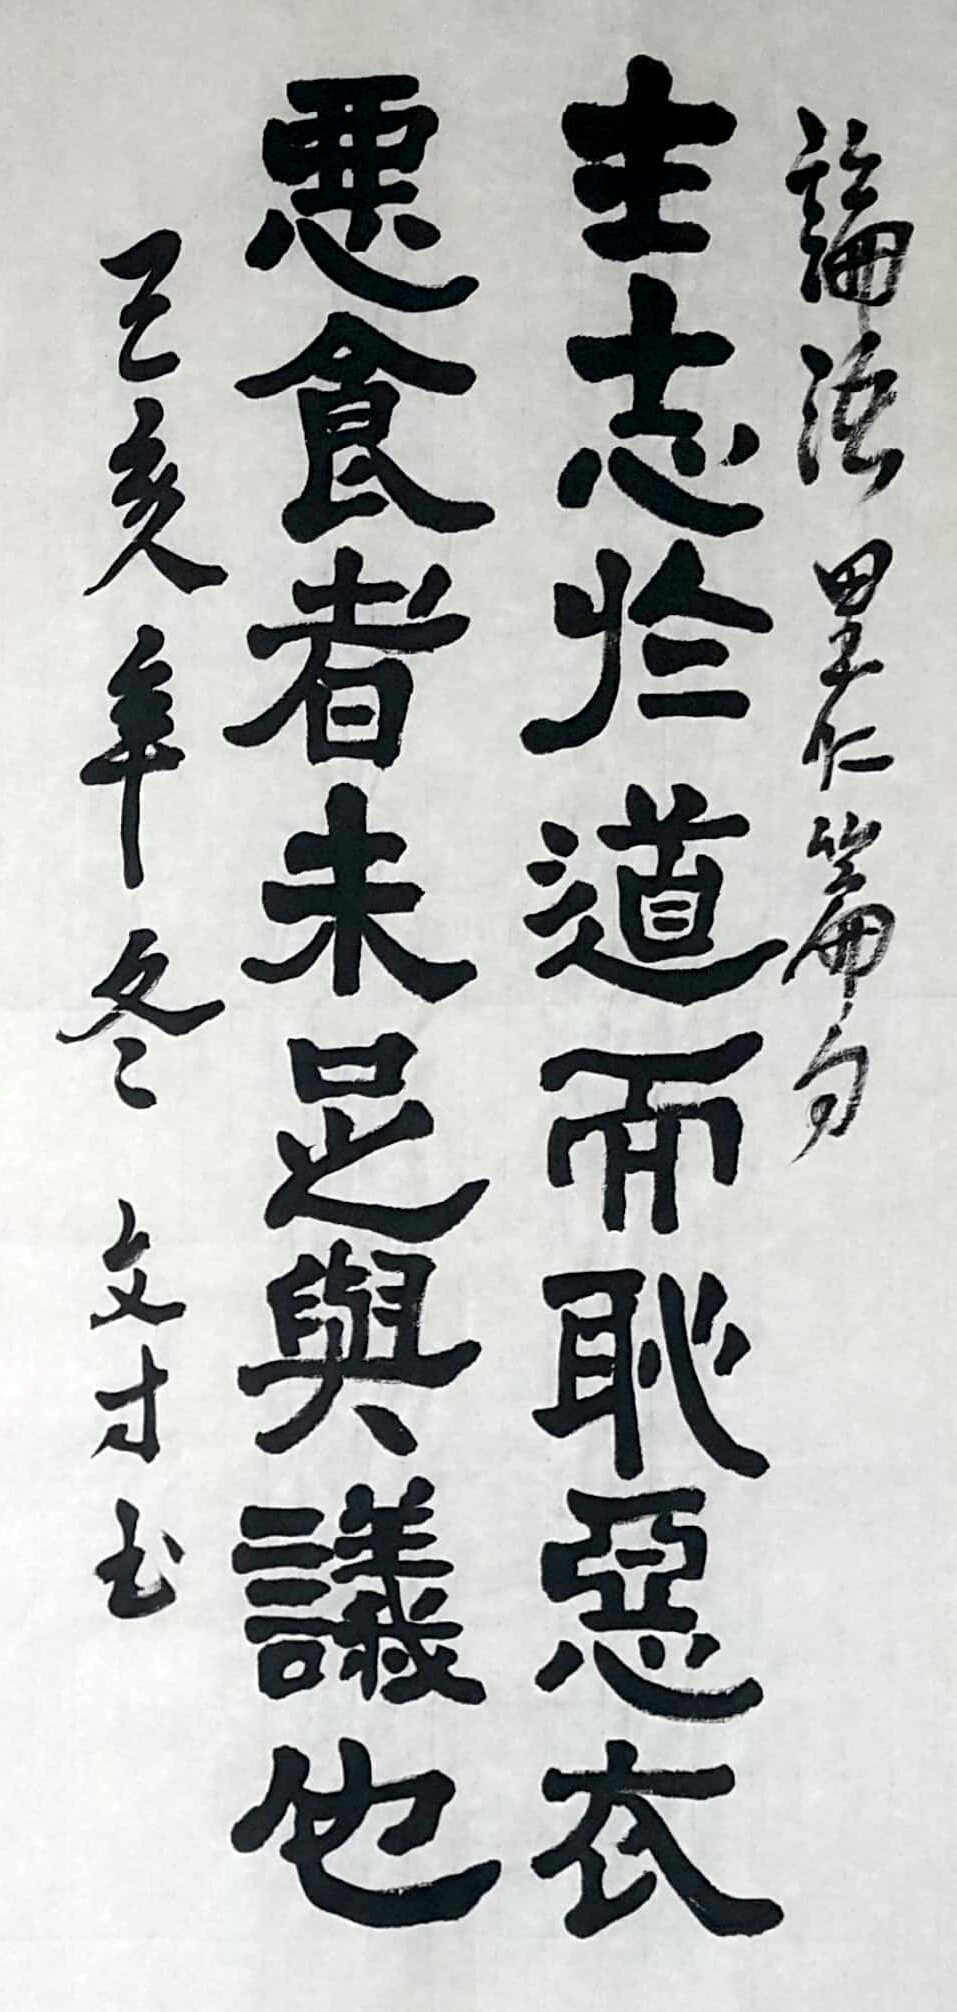 論語里仁篇句
士志於道而恥惡衣
惡食者未足與議也
己亥年冬 文才书